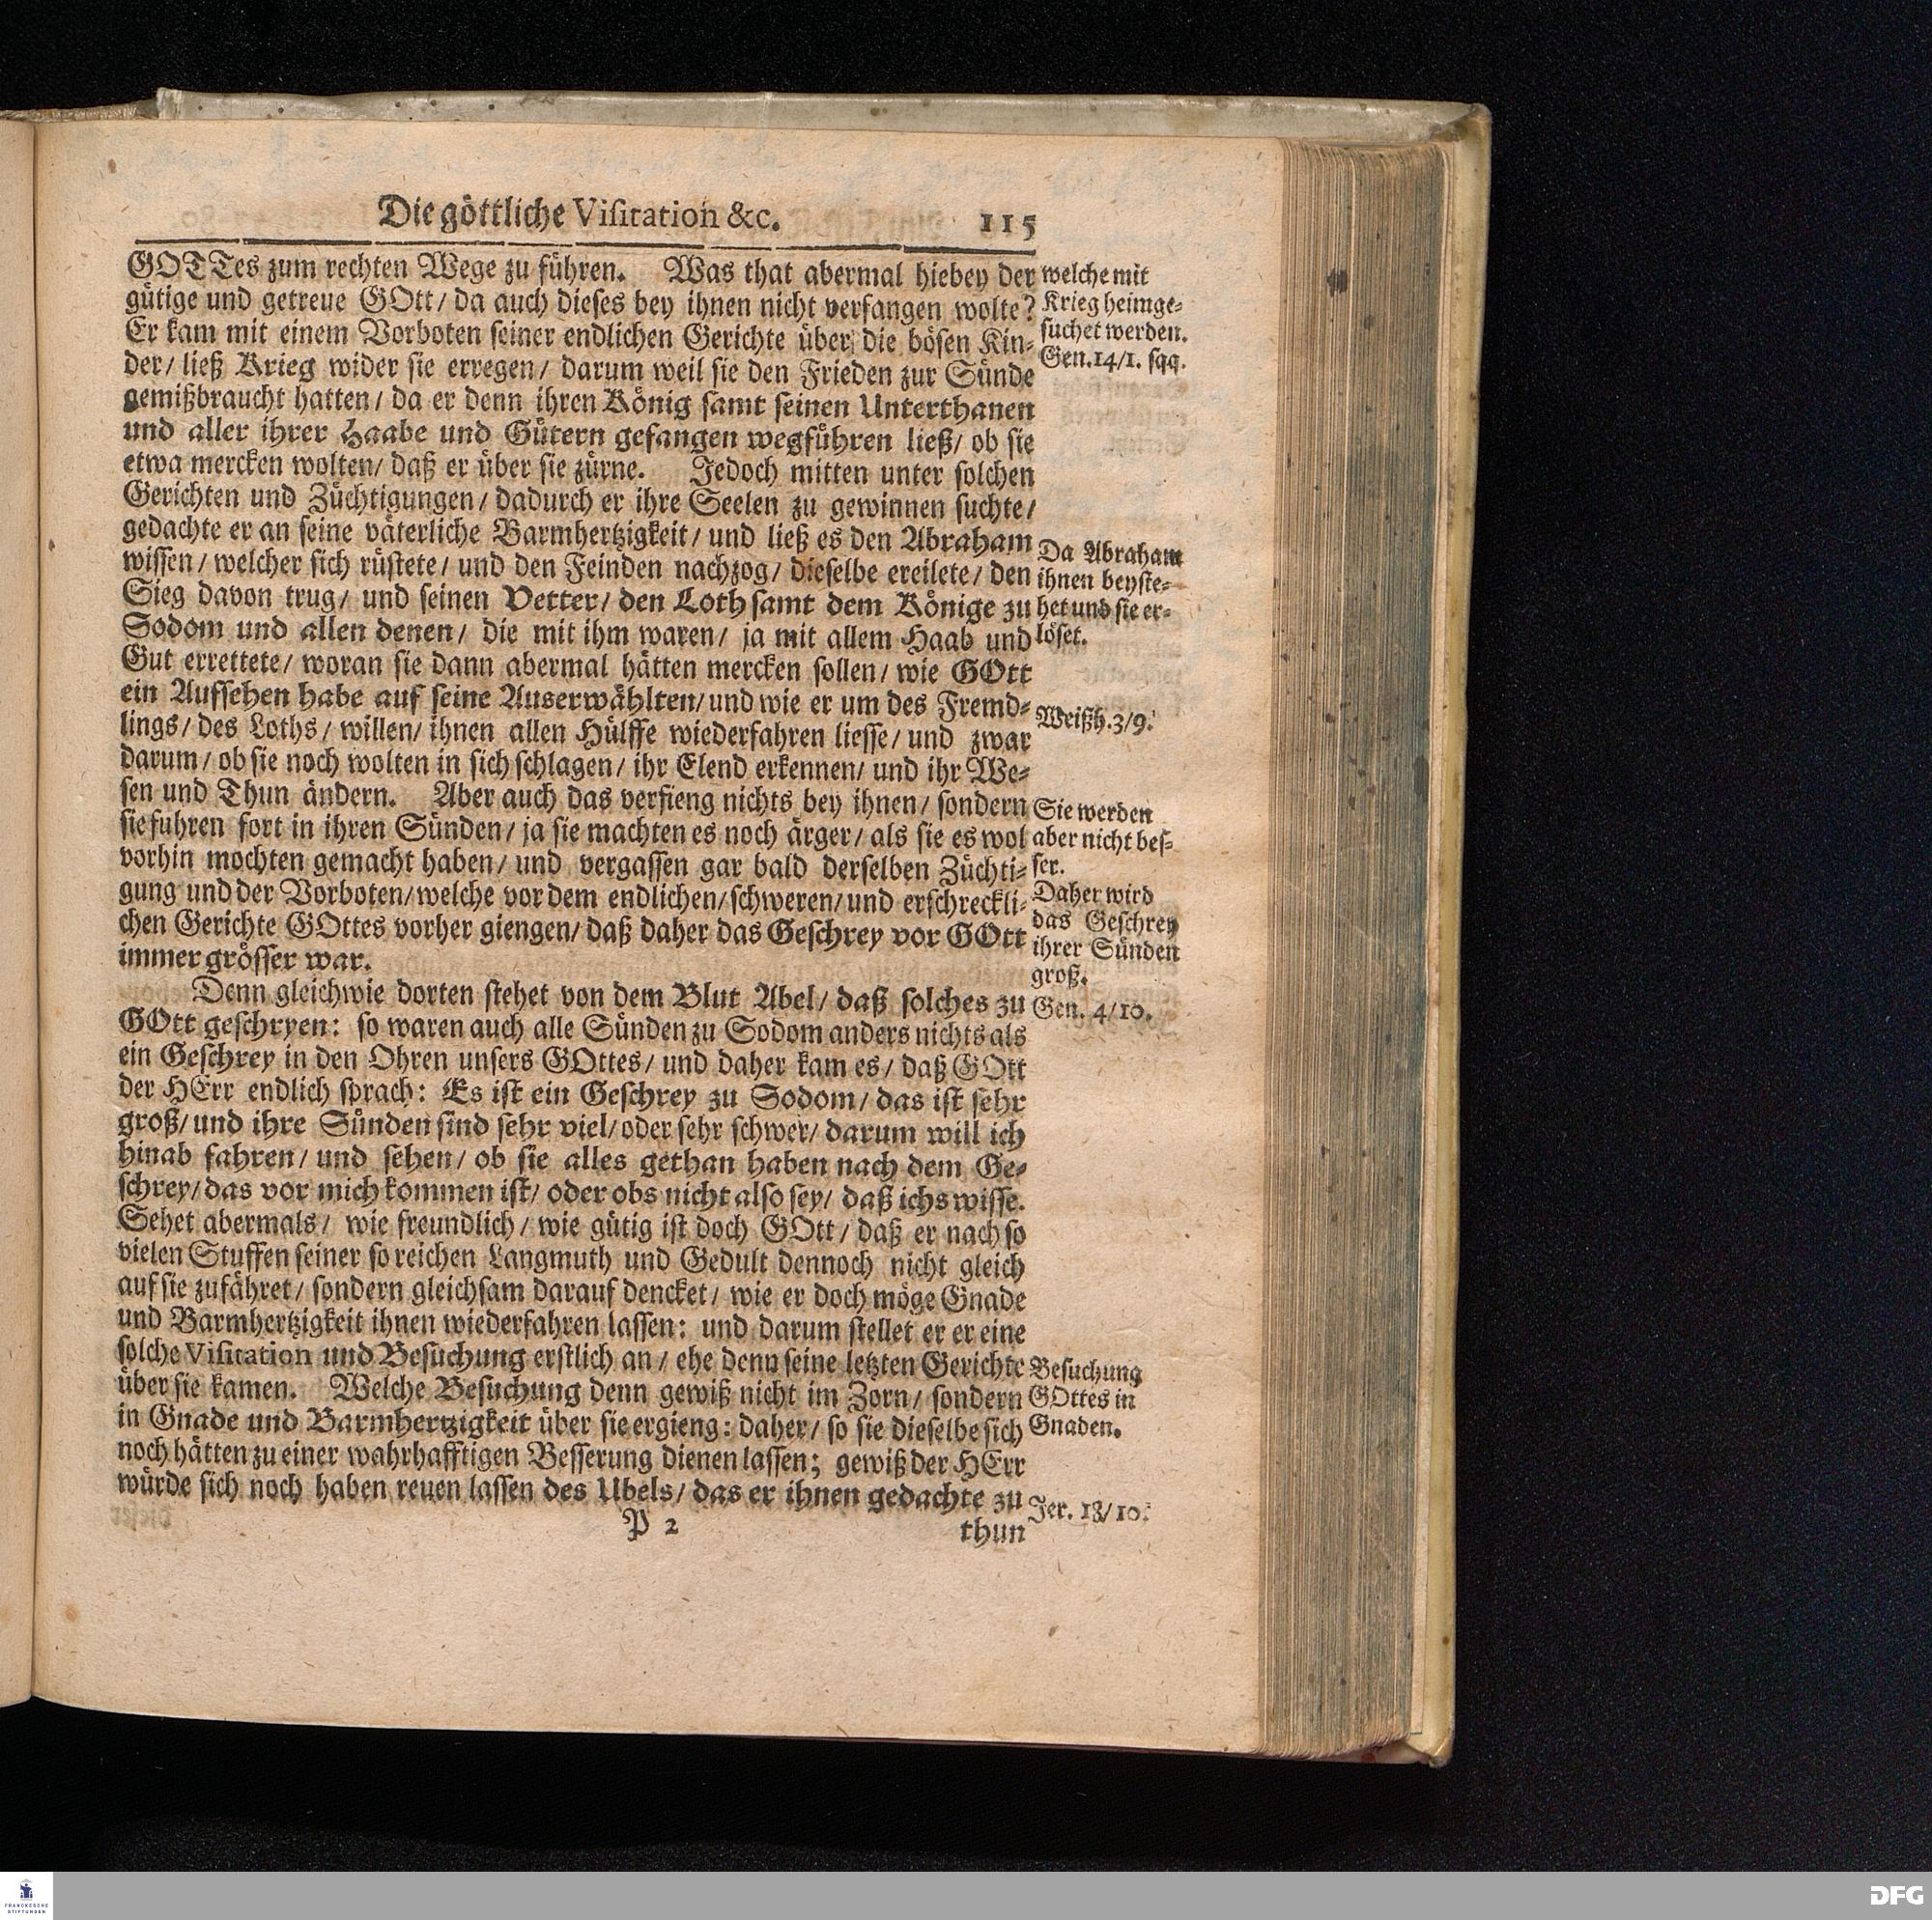 Die göttliche Visitation &c. 115
GOTTes zum rechten Wege zu führen. Was that abermal hiebey der
gütige und getreue GOtt/ da auch dieses bey ihnen nicht verfangen wolte?
Er kam mit einem Vorboten seiner endlichen Gerichte über die bösen Kin-
der/ ließ Krieg wider sie erregen/ darum weil sie den Frieden zur Sünde
gemißbraucht hatten/ da er denn ihren König samt seinen Unterthanen
und aller ihrer Haabe und Gütern gefangen wegführen ließ/ ob sie
etwa mercken wolten/ daß er über sie zürne. Jedoch mitten unter solchen
Gerichten und Züchtigungen/ dadurch er ihre Seelen zu gewinnen suchte/
gedachte er an seine väterliche Barmhertzigkeit/ und ließ es den Abraham
wissen/ welcher sich rüstete/ und den Feinden nachzog/ dieselbe ereilete/ den
Sieg davon trug/ und seinen Vetter/ den Loth samt dem Könige zu
Sodom und allen denen/ die mit ihm waren/ ja mit allem Haab und
Gut errettete/ woran sie dann abermal hätten mercken sollen/ wie GOtt
ein Aufsehen habe auf seine Auserwählten/ und wie er um des Fremd-
lings/ des Loths/ willen/ ihnen allen Hülffe wiederfahren liesse/ und zwar
darum/ ob sie noch wolten in sich schlagen/ ihr Elend erkennen/ und ihr We-
sen und Thun ändern. Aber auch das verfieng nichts bey ihnen/ sondern
sie fuhren fort in ihren Sünden/ ja sie machten es noch ärger/ als sie es wol
vorhin mochten gemacht haben/ und vergassen gar bald derselben Züchti-
gung und der Vorboten/ welche vor dem endlichen/ schweren/ und erschreckli-
chen Gerichte GOttes vorher giengen/ daß daher das Geschrey vor GOtt
immer grösser war.
Denn gleichwie dorten stehet von dem Blut Abel/ daß solches zu
GOtt geschryen: so waren auch alle Sünden zu Sodom anders nichts als
ein Geschrey in den Ohren unsers GOttes/ und daher kam es/ daß GOtt
der HErr endlich sprach: Es ist ein Geschrey zu Sodom/ das ist sehr
groß/ und ihre Sünden sind sehr viel/ oder sehr schwer/ darum will ich
hinab fahren/ und sehen/ ob sie alles gethan haben nach dem Ge-
schrey/ das vor mich kommen ist/ oder obs nicht also sey/ daß ichs wisse.
Sehet abermals/ wie freundlich/ wie gütig ist doch GOtt/ daß er nach so
vielen Stuffen seiner so reichen Langmuth und Gedult dennoch nicht gleich
auf sie zufähret/ sondern gleichsam darauf dencket/ wie er doch möge Gnade
und Barmhertzigkeit ihnen wiederfahren lassen: und darum stellet er er eine
solche Visitation und Besuchung erstlich an/ ehe denn seine letzten Gerichte
über sie kamen. Welche Besuchung denn gewiß nicht im Zorn/ sondern
in Gnade und Barmhertzigkeit über sie ergieng: daher/ so sie dieselbe sich
noch hätten zu einer wahrhafftigen Besserung dienen lassen; gewiß der HErr
würde sich noch haben reuen lassen des Ubels/ das er ihnen gedachte zu
P 2 thun
welche mit
Krieg heimge-
suchet werden.
Gen. 14/1. sqq.
Da Abraham
ihnen beyste-
het und sie er-
löset.
Weißh. 3/9.
Sie werden
aber nicht bes-
ser.
Daher wird
das Geschrey
ihrer Sünden
groß.
Gen. 4/10.
Besuchung
GOttes in
Gnaden.
Jer. 18/10.
FRANCKESCHE
STIFTUNGEN
DFG